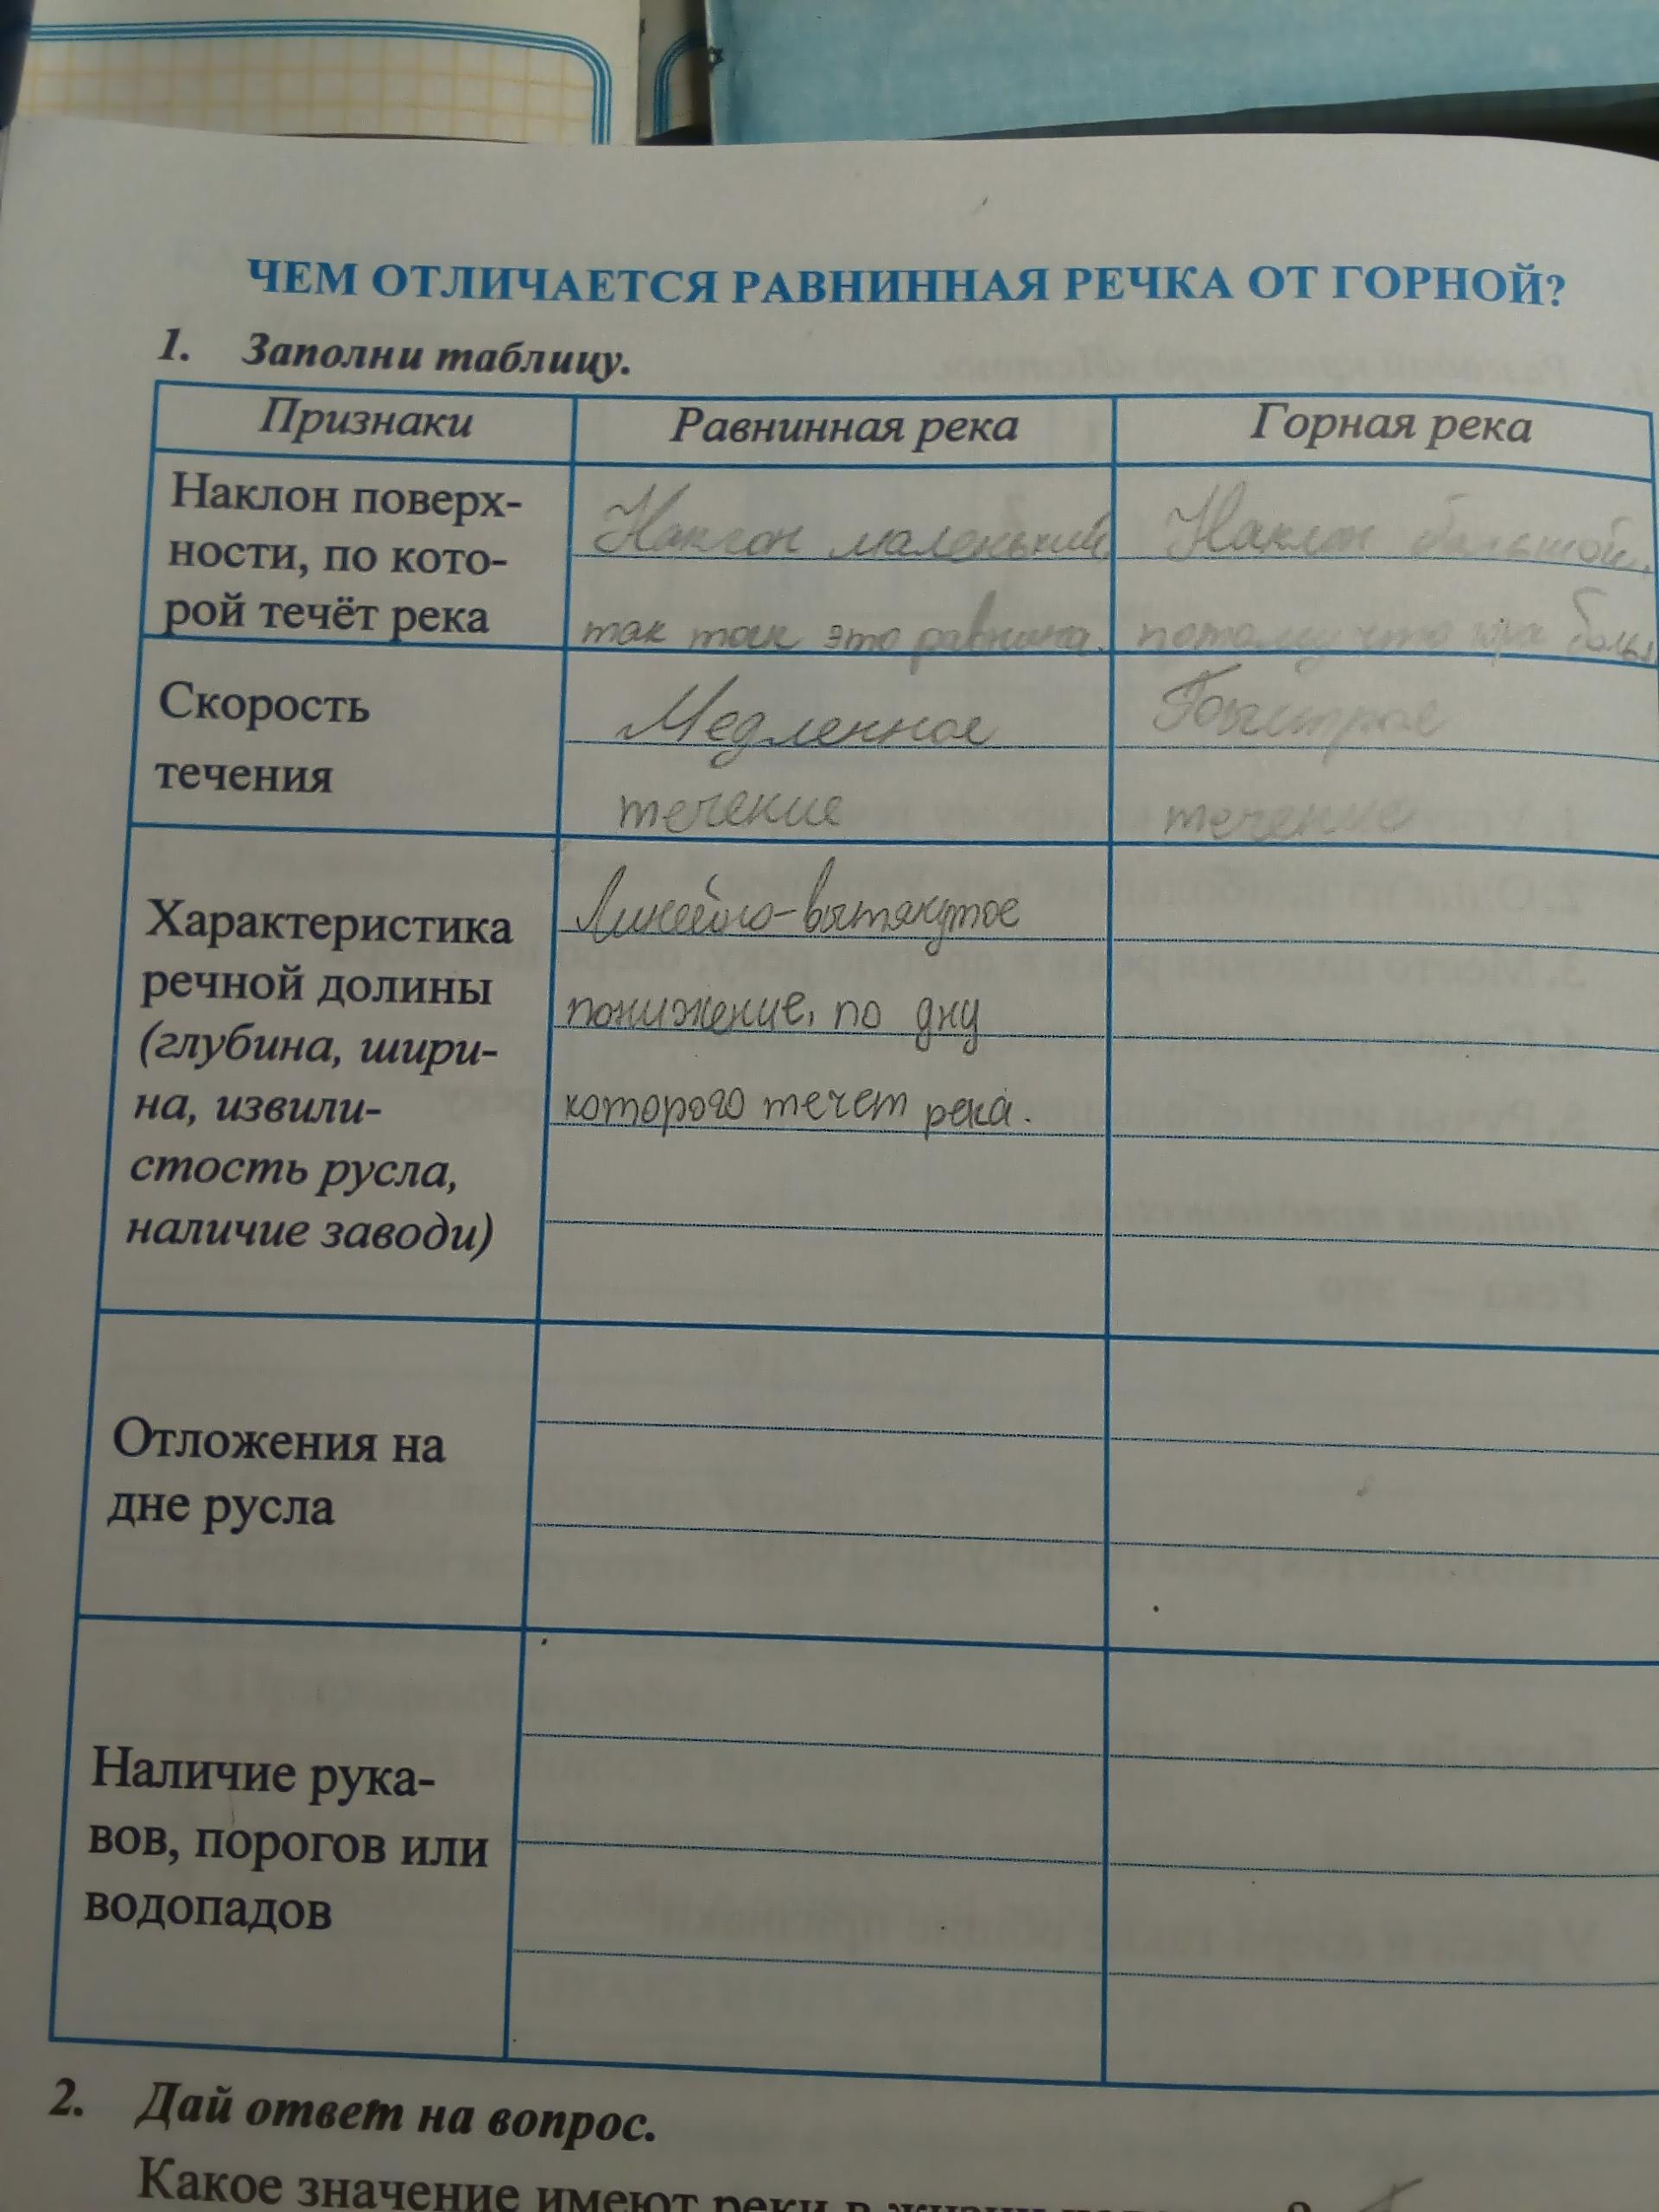 ЧЕМ ОТЛИЧАЕТСЯ РАВНИННАЯ РЕЧКА ОТ ГОРНОЙ?
1. Заполни таблицу.
Признаки
Равнинная река
Горная река
Наклон поверх-
ности, по кото-
рой течёт река
Наклон маленький,
так так это равнина.
Наклон большой,
потому что гора
Скорость
течения
Медленное
течение
Быстрое
течение
Характеристика
речной долины
(глубина, шири-
на, извили-
стость русла,
наличие заводи)
Линейно-вытянутое
понижение, по дну
которого течет река.
Отложения на
дне русла
Наличие рука-
вов, порогов или
водопадов
2. Дай ответ на вопрос.
Какое значение имеют реки в жизни